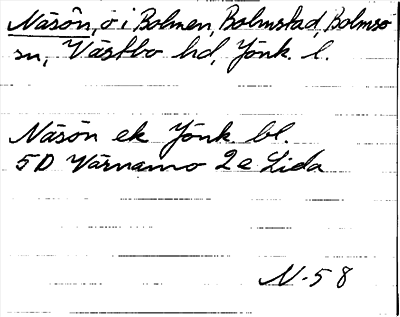 Näsön, ö i Bolmen, Bolmstad, Bolmsö
sn, Västbo hd, Jönk. l.
Näsön ek Jönk. bl.
5D Värnamo 2e Lida
N-58